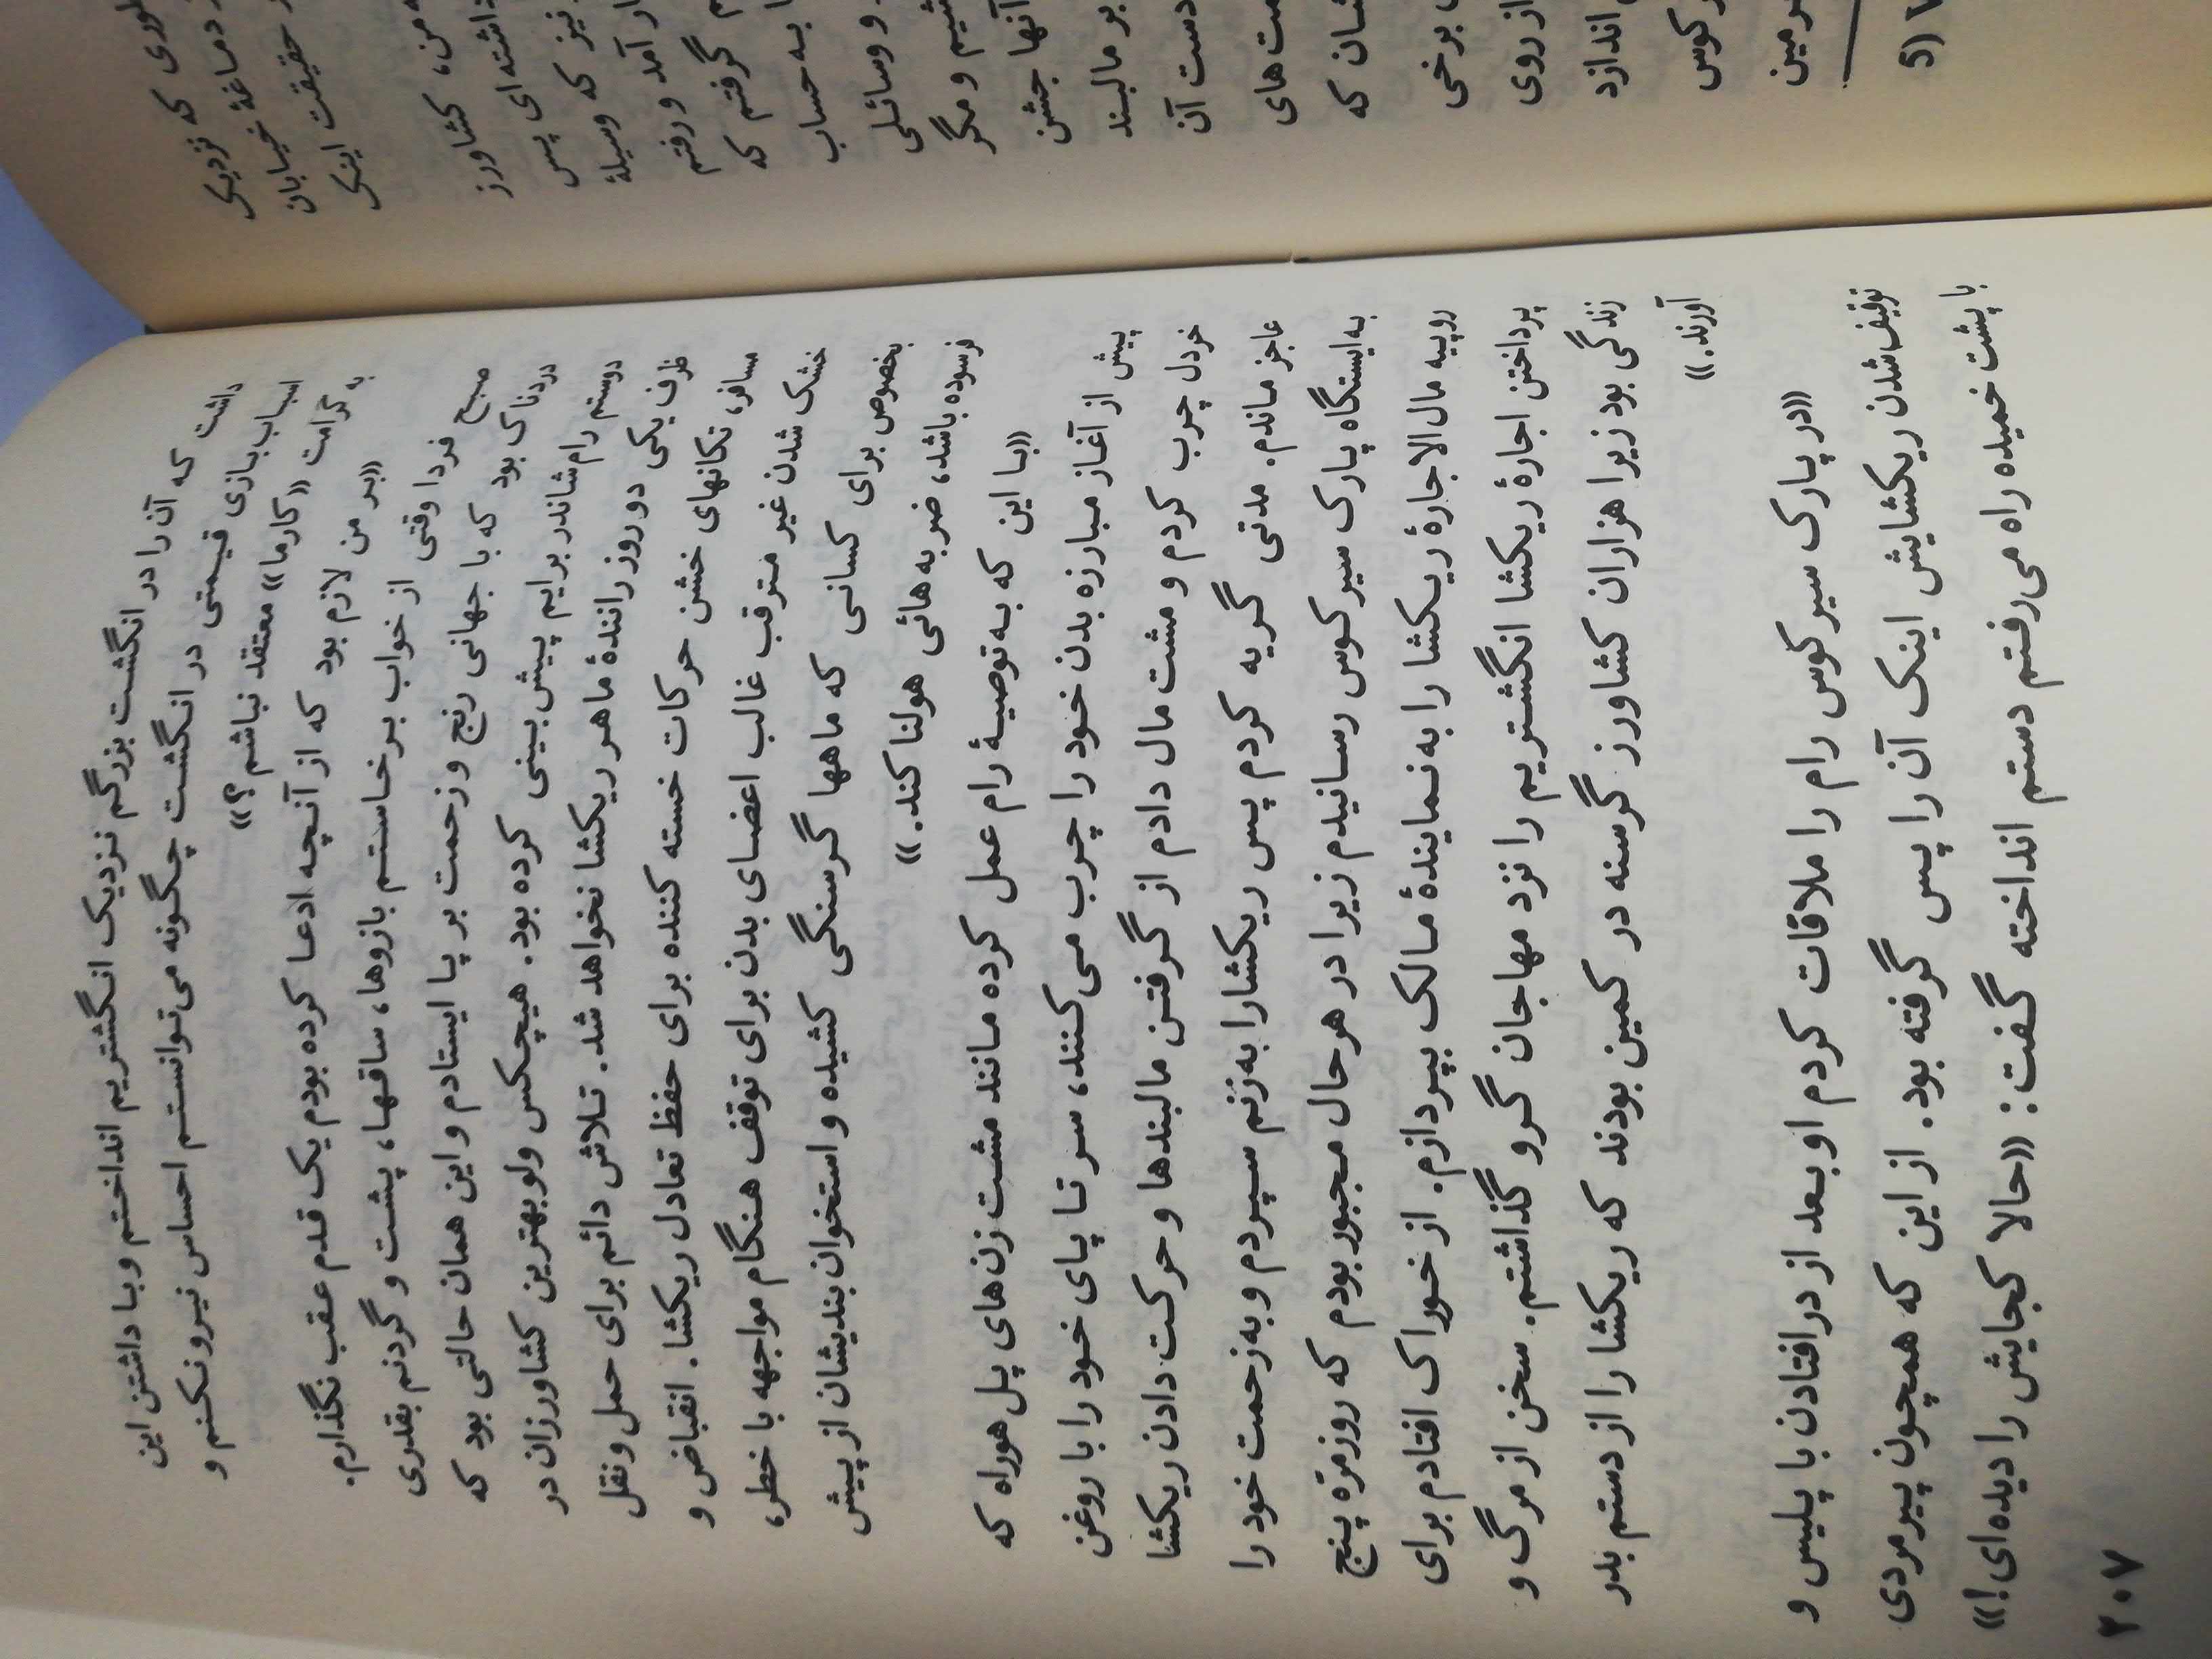 که نزدیک
دماغهٔ خیابان
حقیقت اینکه
من، کشاورز
داشته ای پس
نیز که وسیلهٔ
آمد و رفتم
گرفتم که
به حساب
و وسائلی
و مگر
آنها جشن
بر مالبند
دست آن
های
که
برخی
از روی
اندازد
کوس
5)
داشت که آن را در انگشت بزرگم نزدیک انگشتریم انداختم و با داشتن این
اسباب بازی قیمتی در انگشت چگونه می‌توانستم احساس نیرو نکنم و
به کرامت «کارما» معتقد نباشم؟»
«بر من لازم بود که از آنچه ادعا کرده بودم یک قدم عقب نگذارم.
صبح فردا وقتی از خواب برخاستم بازوها، ساقها، پشت و گردنم بقدری
دردناک بود که با جهانی رنج و زحمت بر پا ایستادم و این همان حالتی بود که
دوستم رام شاندر برایم پیش بینی کرده بود. هیچکس ولو بهترین کشاورزان در
ظرف یکی دو روز رانندهٔ ماهر ریکشا نخواهد شد. تلاش دائم برای حمل و نقل
مسافر، تکانهای خشن حرکات خسته کننده برای حفظ تعادل ریکشا. انقباض و
خشک شدن غیر مترقب غالب اعضای بدن برای توقف هنگام مواجهه با خطر،
بخصوص برای کسانی که ماهها گرسنگی کشیده و استخوان بندیشان از پیش
فرسوده باشد، ضربه هائی هولناکند.»
«با این که به توصیهٔ رام عمل کرده مانند مشت زن های پل هوراه که
پیش از آغاز مبارزه بدن خود را چرب می کنند، سر تا پای خود را با روغن
خردل چرب کردم و مشت مال دادم از گرفتن مالبندها و حرکت دادن ریکشا
عاجز ماندم. مدتی گریه کردم پس ریکشا را به زنم سپردم و به زحمت خود را
به ایستگاه پارک سیرکوس رسانیدم زیرا در هر حال مجبور بودم که روزمرّه پنج
روپیه مال الاجارهٔ ریکشا را به نمایندهٔ مالک بپردازم. از خوراک افتادم برای
پرداختن اجارهٔ ریکشا انگشتریم را نزد مهاجان گرو گذاشتم. سخن از مرگ و
زندگی بود زیرا هزاران کشاورز گرسنه در کمین بودند که ریکشا را از دستم بدر
آورند.»
«در پارک سیرکوس رام را ملاقات کردم او بعد از درافتادن با پلیس و
توقیف شدن ریکشایش اینک آن را پس گرفته بود. از این که همچون پیرمردی
با پشت خمیده راه می‌رفتم دستم انداخته گفت: «حالا کجایش را دیده‌ای!»
۲۰۷